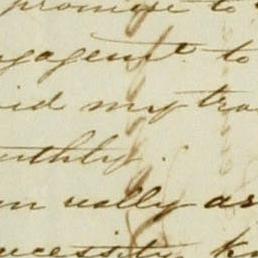 promise to
ngagent to
id my tra
nthly.
un ually as
necessity kn